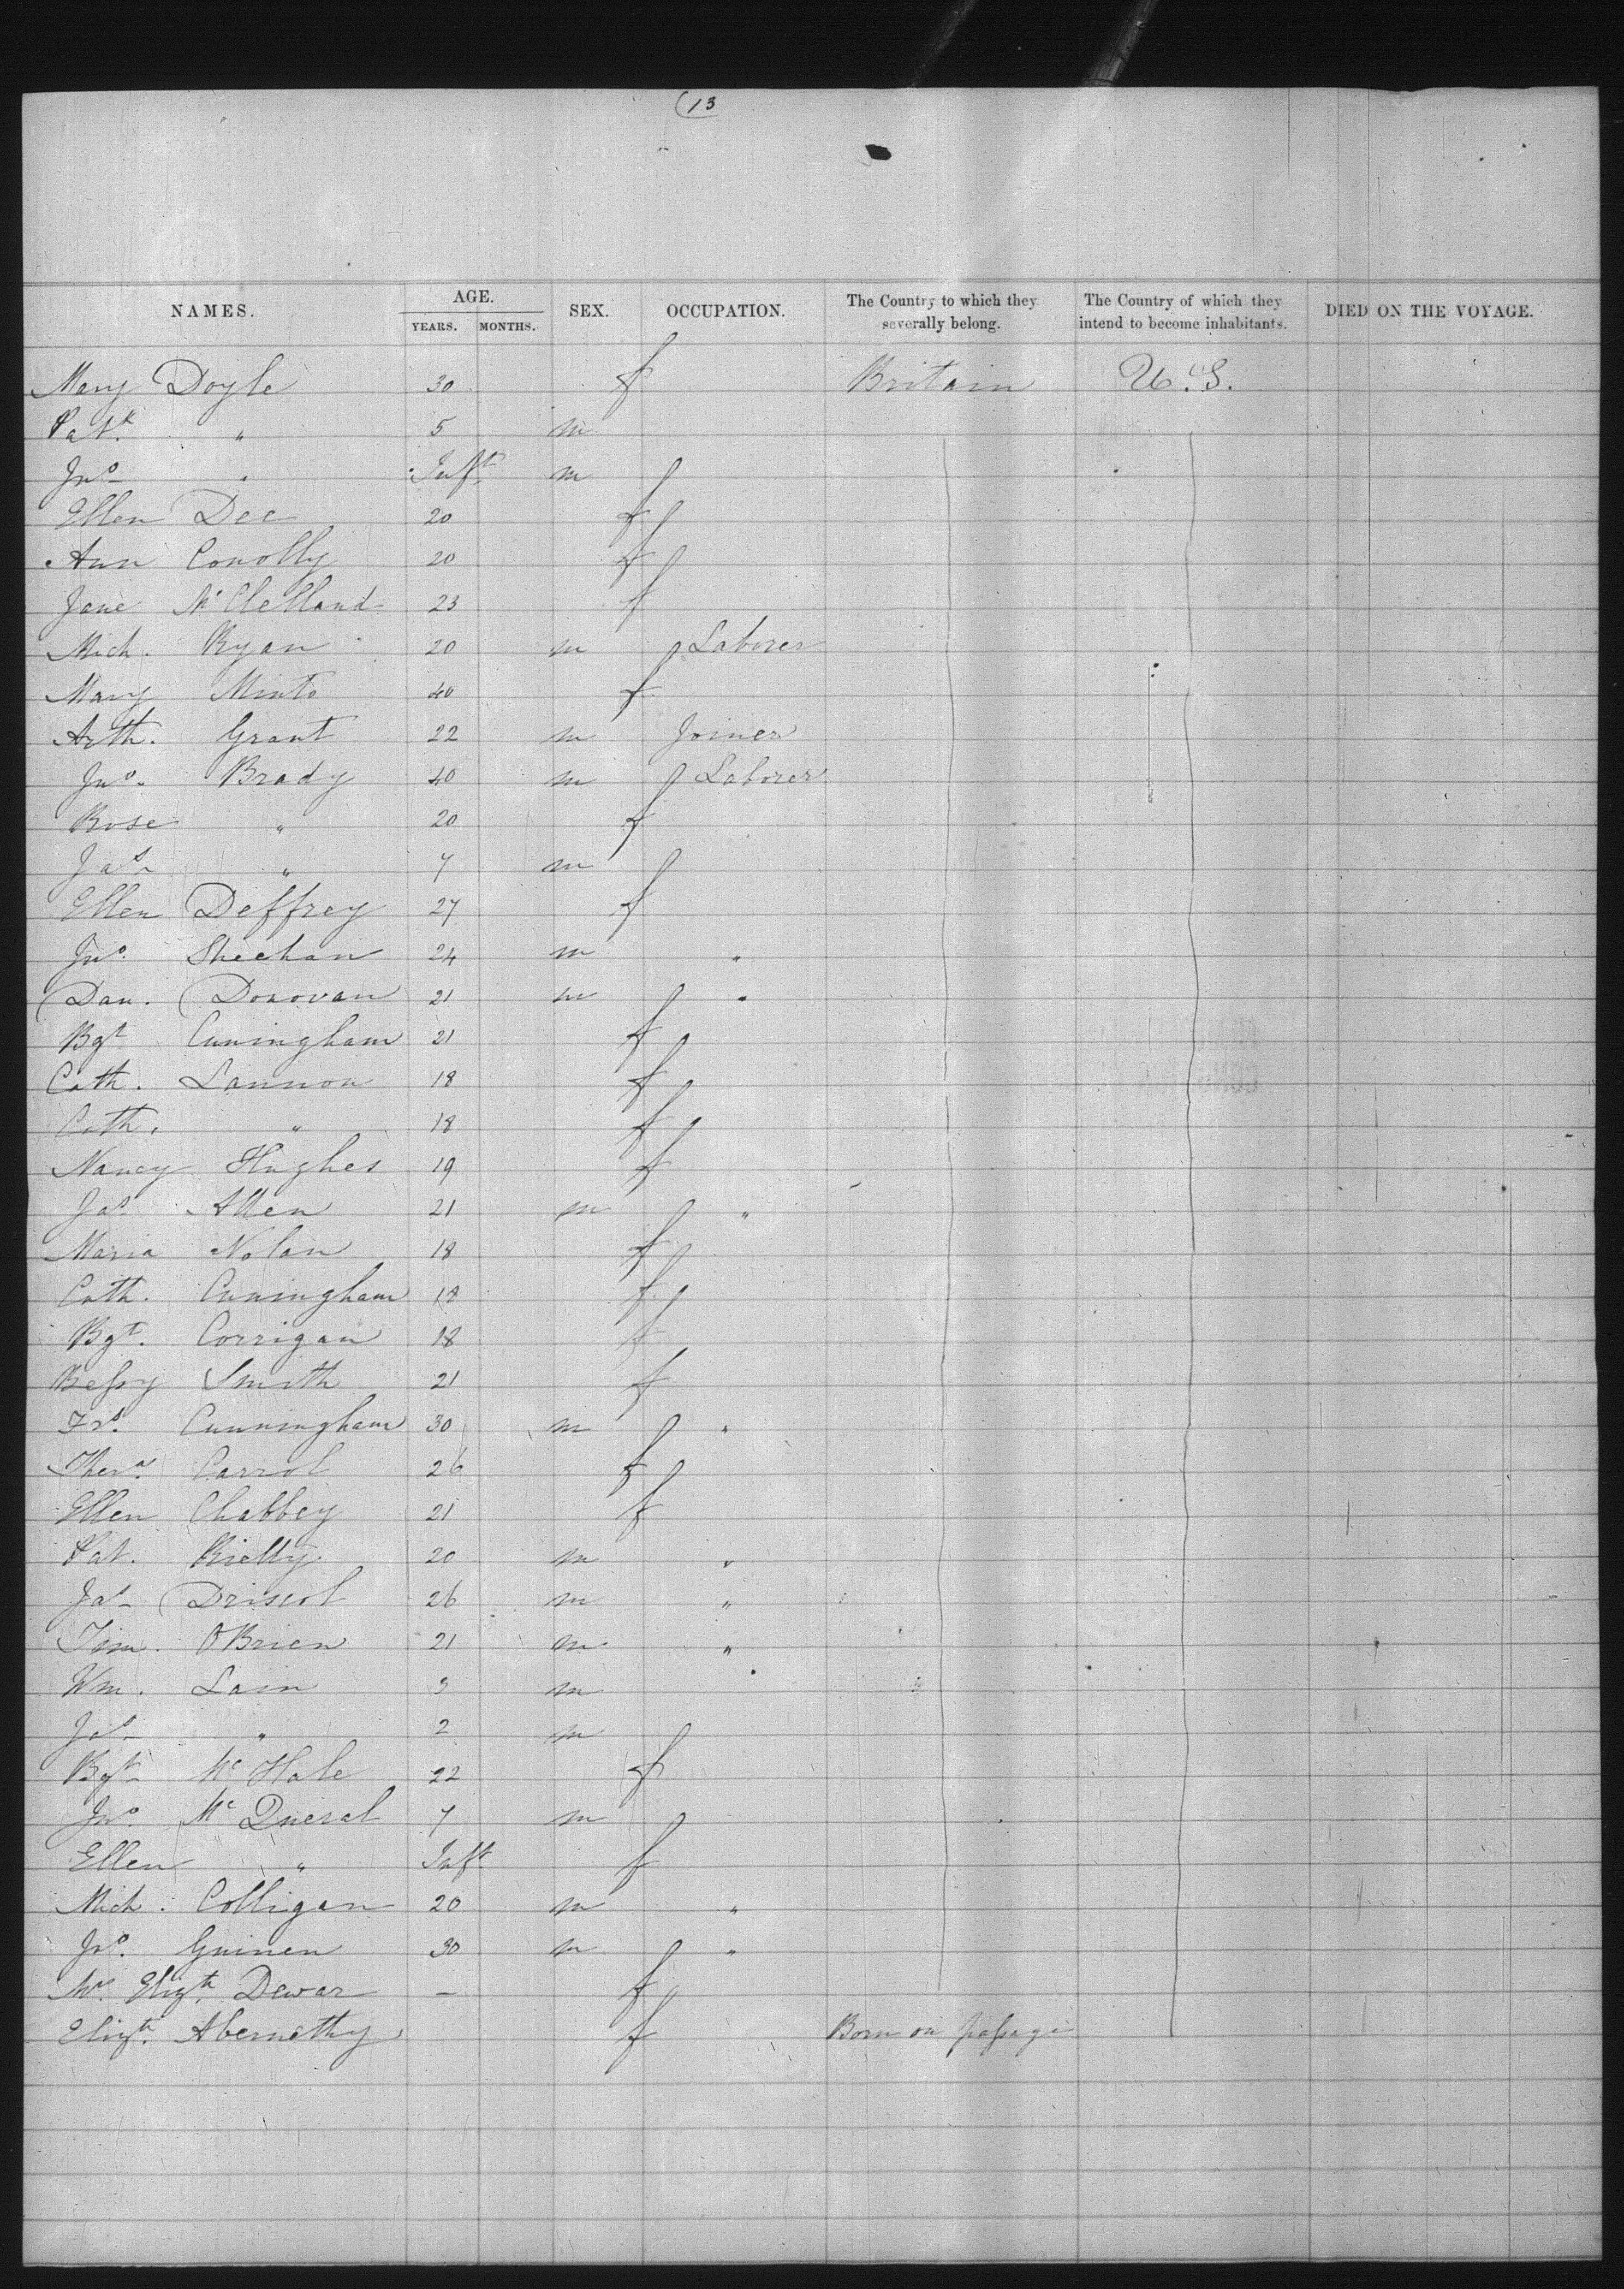 13
NAMES. AGE. YEARS. MONTHS. SEX. OCCUPATION. The Country to which they severally belong. The Country of which they intend to become inhabitants. DIED ON THE VOYAGE.
Mary Doyle 30 f Britain U.S.
Patk. " 5 m
Jno. " Inft. m
Ellen Dee 20 f
Ann Conolly 20 f
Jane McClelland 23 f
Mich. Ryan 20 m Laborer
Mary Minto 40 f
Arth. Grant 22 m Joiner
Jno. Brady 40 m Laborer
Rose " 20 f
Jas. " 7 m
Ellen Deffrey 27 f
Jno. Sheehan 24 m "
Dan. Donovan 21 m "
Bgt. Cuningham 21 f
Cath. Lannon 18 f
Cath. " 18 f
Nancy Hughes 19 f
Jas. Allen 21 m "
Maria Nolan 18 f
Cath. Cuningham 18 f
Bgt. Corrigan 18 f
Bessy Smith 21 f
Frs. Cunningham 30 m "
Thersa. Carrol 26 f
Ellen Chabbey 21 f
Pat. Rielly 20 m "
Jas. Driscol 26 m "
Tim. O'Brien 21 m "
Wm. Lain 3 m
Jas. " 2 m
Bgt. McHale 22 f
Jno. McQueral 7 m
Ellen " Inft. f
Mich. Colligan 20 m "
Jno. Guinen 30 m "
Mrs. Elizth. Dewar — f
Elizth. Abernethy f Born on passage